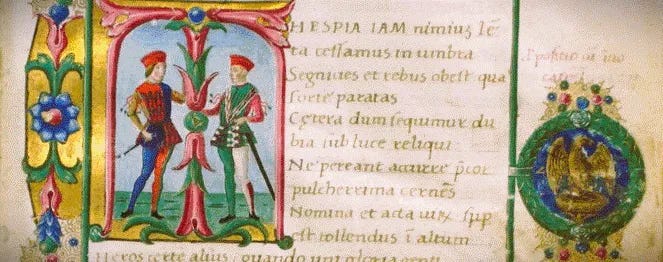 THESPIA IAM nimius lē
ta cessamus in umbra
Segnities et rebus obest qua
sorte paratas
Cetera dum sequimur du
bia sub luce reliqui
Ne pereant accurre p̄cor
pulcherrima cernēs
Nomina et acta uirū sup
est tollendus ī altum
Heros certe alius quando uni gloria genti